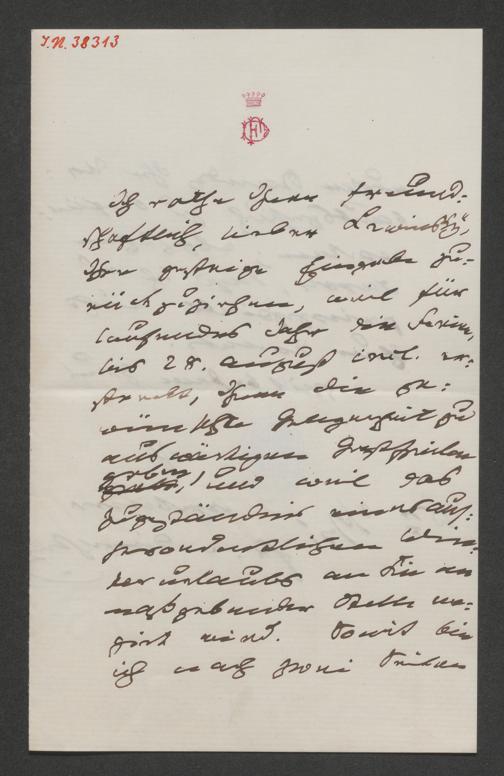 J.N. 38313
Ich rathe Ihnen freund-
schaftlich, lieber Lewinsky,
Ihre gestrige Eingabe zu-
rückzuziehen, weil für
laufendes Jahr die Ferien,
bis 28. August incl. er-
streckt, Ihnen die ge-
wünschte Gelegenheit zu
auswärtigen Gastspielen
geben, und weil das
Zugeständnis eines auß-
gewöhnlichen Win-
terurlaubs an Sie an
maßgebender Stelle ne-
girt wird. Somit bin
ich nach zwei Seiten